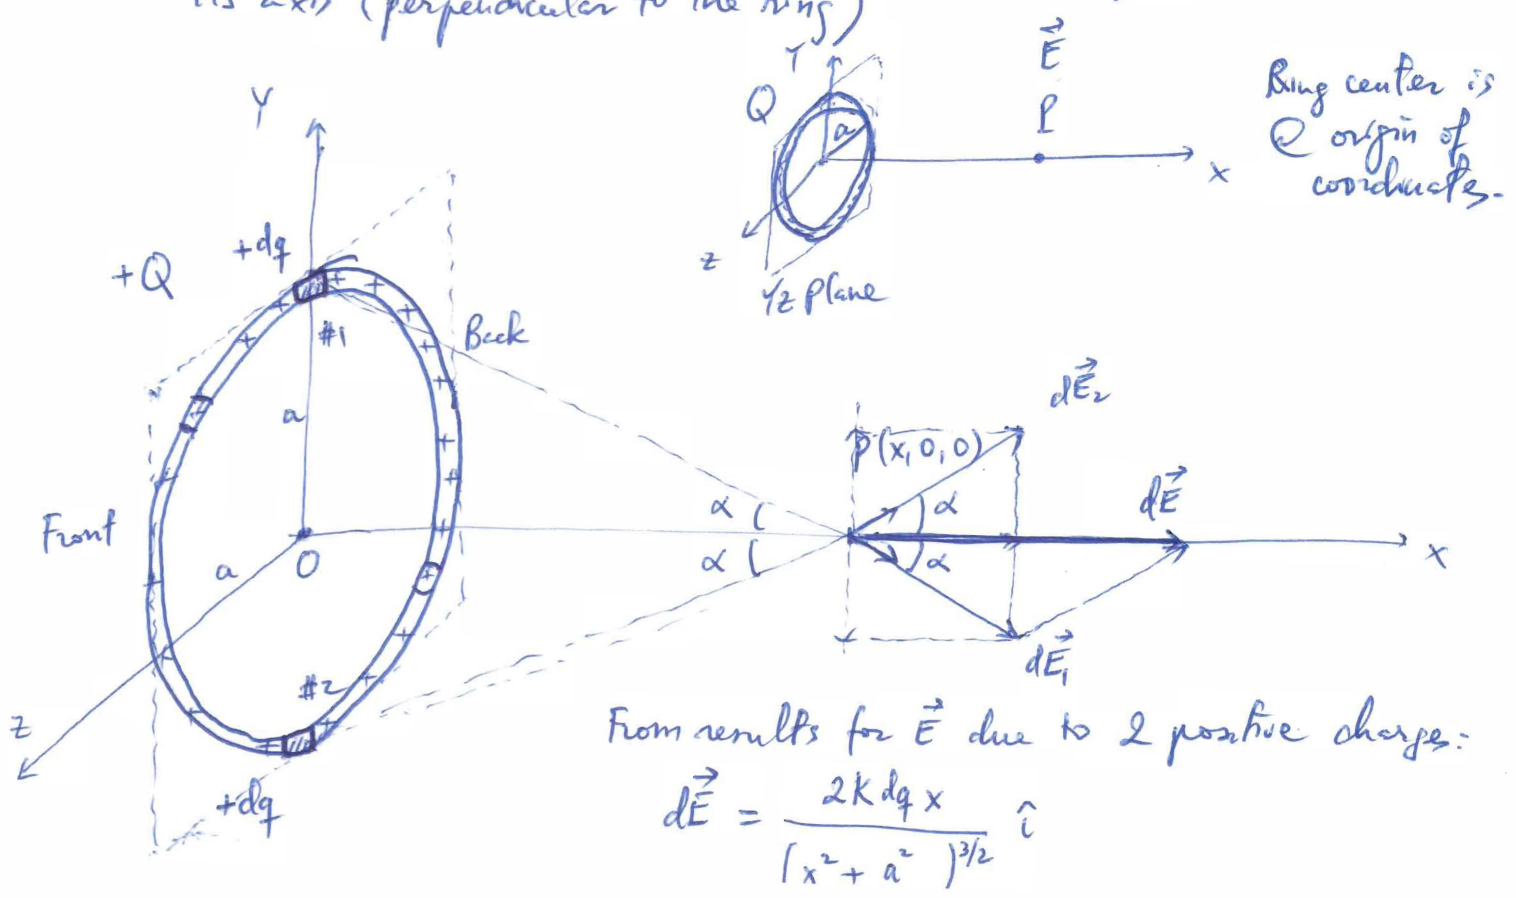 its axis (perpendicular to the ring)
Y
Q
a
E⃗
P
x
z
YZ plane
Ring center is
@ origin of
coordinates.
Y
+Q
+dq
#1
Back
a
Front
a
O
z
#2
+dq
α
α
P(x, 0, 0)
dE⃗₂
α
α
dE⃗
x
dE⃗₁
From results for E⃗ due to 2 positive charges:
dE⃗ = 2k dq x / (x² + a²)^3/2 î